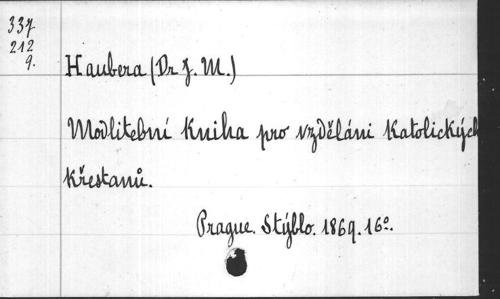 337
212
9.
Haubera (Dr J. M.)
Modlitební Kniha pro vzděláni Katolických
křestanů.
Prague. Stýblo. 1869. 16º.